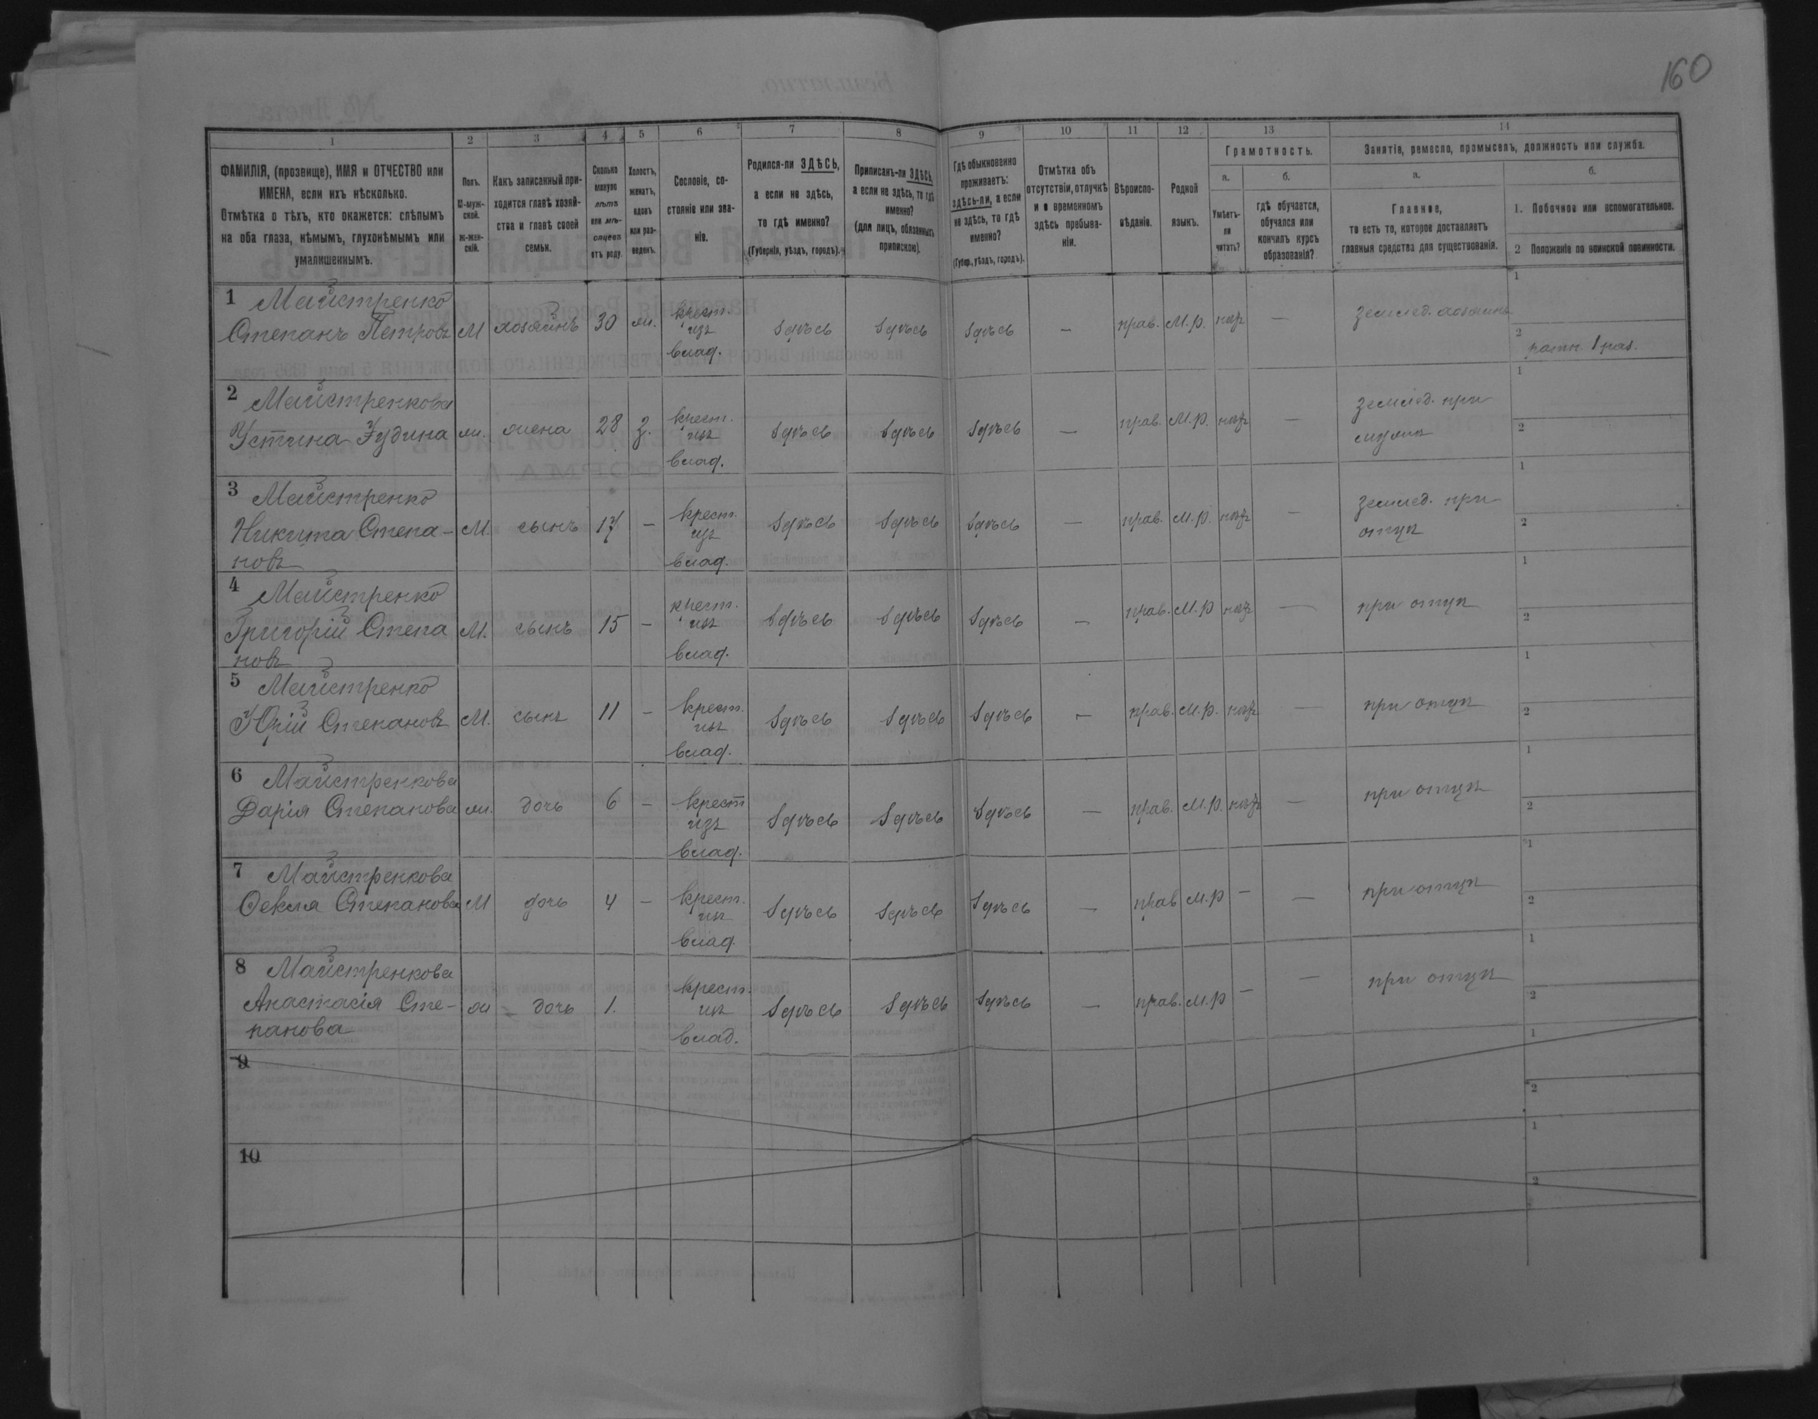 160
1 2 3 4 5 6 7 8 9 10 11 12 13 14
ФАМИЛІЯ, (прозвище), ИМЯ и ОТЧЕСТВО или
ИМЕНА, если ихъ нѣсколько.
Отмѣтка о тѣхъ, кто окажется: слѣпымъ
на оба глаза, нѣмымъ, глухонѣмымъ или
умалишеннымъ.
Полъ.
М-муж-
ской.
ж-жен-
скій.
Какъ записанный при-
ходится главѣ хозяй-
ства и главѣ своей
семьи.
Сколько
минуло
лѣтъ
или мѣ-
сяцевъ
отъ роду.
Холостъ,
женатъ,
вдовъ
или раз-
веденъ.
Сословіе, со-
стояніе или зва-
ніе.
Родился-ли ЗДѢСЬ,
а если не здѣсь,
то гдѣ именно?
(Губернія, уѣздъ, городъ).
Приписанъ-ли ЗДѢСЬ,
а если не здѣсь, то гдѣ
именно?
(для лицъ, обязанныхъ
припискою).
Гдѣ обыкновенно
проживаетъ:
здѣсь-ли, а если
не здѣсь, то гдѣ
именно?
(Губер., уѣздъ, городъ).
Отмѣтка объ
отсутствіи, отлучкѣ
и о временномъ
здѣсь пребыва-
ніи.
Вѣроиспо-
вѣданіе.
Родной
языкъ.
Грамотность.
а.
Умѣетъ-
ли
читать?
б.
гдѣ обучается,
обучался или
кончилъ курсъ
образованія?
Занятіе, ремесло, промыселъ, должность или служба.
а.
Главное,
то есть то, которое доставляетъ
главныя средства для существованія.
б.
1. Побочное или вспомогательное.
2 Положеніе по воинской повинности.
1 Майстренко
Степанъ Петровъ М хозяинъ 30 ж. крест. изъ влад. здѣсь здѣсь здѣсь — прав. М.р. — землед. хозяинъ
1
2 ратн. 1 раз.
2 Майстренкова
Устина ж. жена 28 з. крест. изъ влад. здѣсь здѣсь здѣсь — прав. М.р. — землед. при
1
2
3 Майстренко
Никита Степа-
новъ М. сынъ 17 — крест. изъ влад. здѣсь здѣсь здѣсь — прав. М.р. — землед. при отцѣ
1
2
4 Майстренко
Григорій Степа
новъ М. сынъ 15 — крест. изъ влад. здѣсь здѣсь здѣсь — прав. М.р — при отцѣ
1
2
5 Майстренко
Юрій Степановъ М. сынъ 11 — крест. изъ влад. здѣсь здѣсь здѣсь — прав. М.р. — при отцѣ
1
2
6 Майстренкова
Дарія Степанова ж. дочь 6 — крест изъ влад. здѣсь здѣсь здѣсь — прав. М.р. — при отцѣ
1
2
7 Майстренкова
Ѳекля Степанова М дочь 4 — крест. изъ влад. здѣсь здѣсь здѣсь — прав М.р — — при отцѣ
1
2
8 Майстренкова
Анастасія Сте-
панова ж дочь 1. крест. изъ влад. здѣсь здѣсь здѣсь — прав. М.р — — при отцѣ
1
2
9
1
2
10
1
2